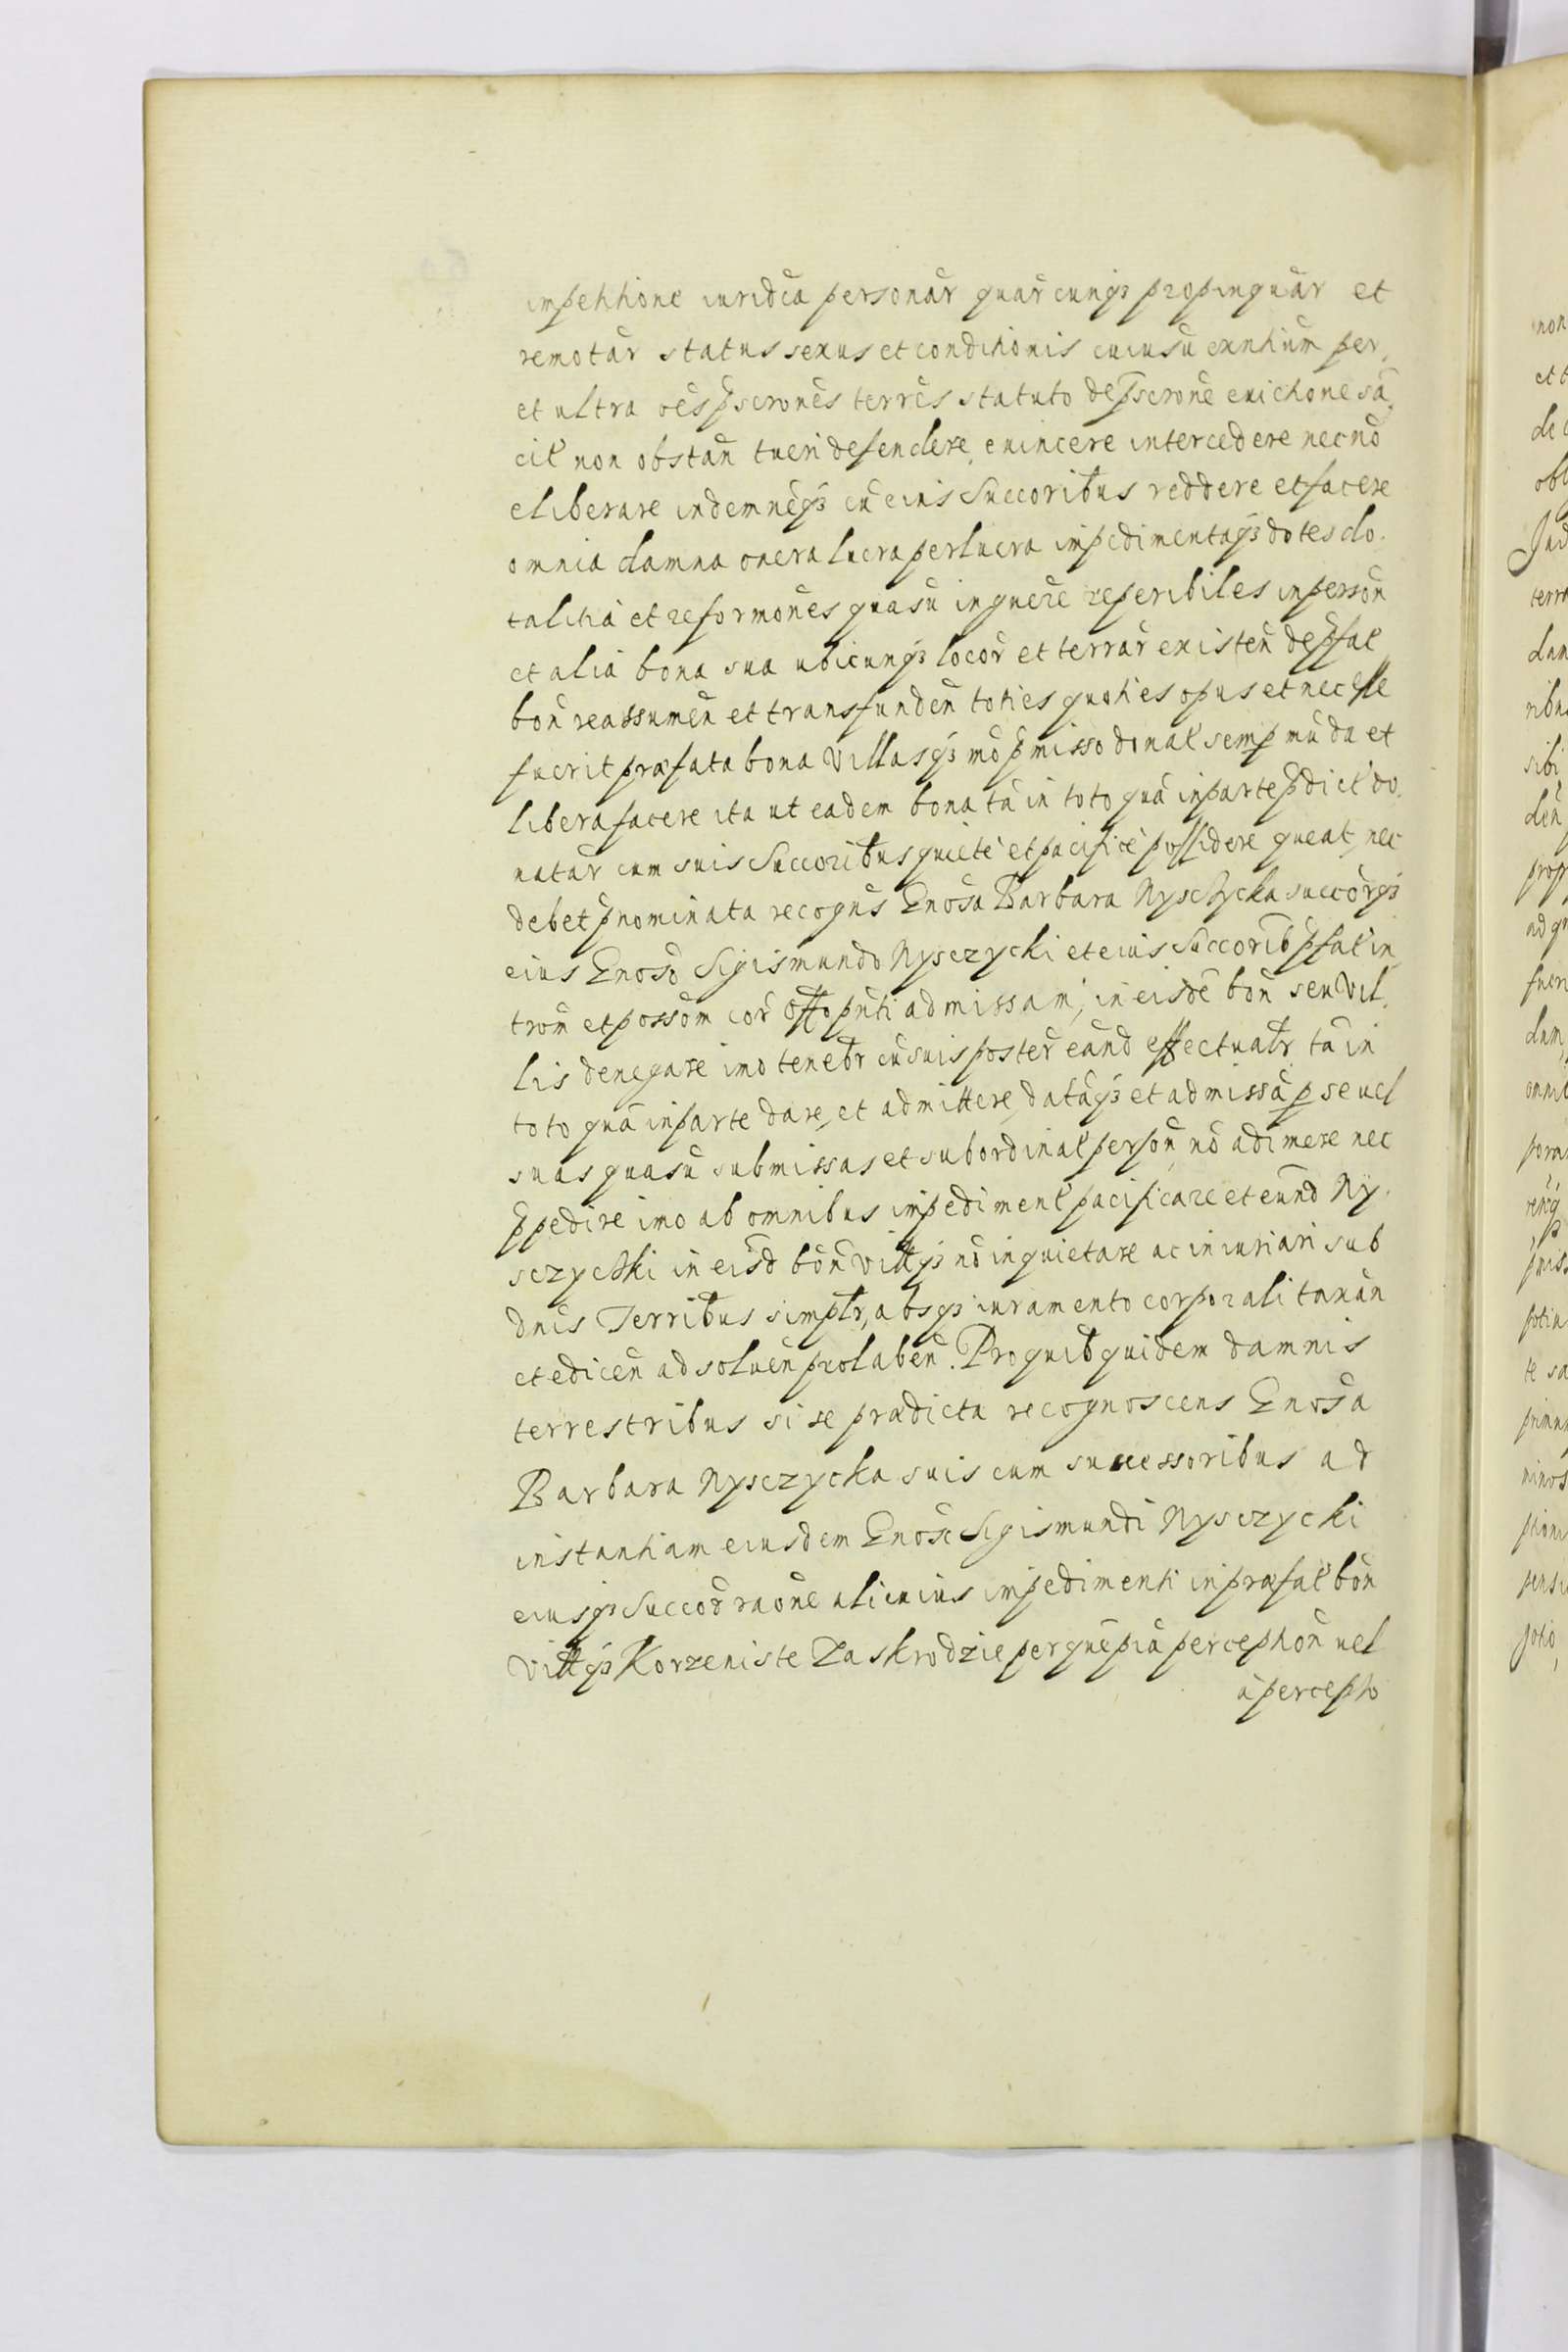 impetitione iuridca personar quarcunqz propinquar et
remotar status sexus et conditionis cuiusu exntium per,
et ultra oes pscrones terres statuto de pscrone euictione sa,
cit non obstan tueri defendere, euincere intercedere necno
eliberare indemneqz cu eius Succoribus reddere et facere
omnia damna onera lucra perlucra impedimentaqz dotes do.
talitia et reformones quasu in guere referibiles in person
et alia bona sua ubicunqz locor et terrar existen de pfat
bon reassumen et transfunden toties quoties opus et necesse
fuerit præfata bona Villasqz mo pmisso donat semp munda et
libera facere ita ut eadem bona ta in toto qua in parte pdict do,
natar cum suis Succoribus quiete et pacifice possidere queat, nec
debet pnominata recogns Gnosa Barbara Nysczycka succorqz
eius Gnoso Sigismundo Nysczycki et eius Succorib pfat in,
trom et possom cor offo pnti admissam, in eisde bon seu Vil,
lis denegare imo tenebr cu suis poster eand effectuabr, ta in
toto qua in parte dare, et admittere, dataqz et admissa p se uel
suas quasu submissas et subordinat person no adimere nec
ppedire imo ab omnibus impediment pacificare et eund Ny,
sczycki in eisd bon Villqz no inquietare ac iniuriari sub
dnis Terribus simplr, absqz iuramento corporali taxan
et edicen ad soluen prolaben. Pro quib quidem damnis
terrestribus si se prædicta recognoscens Gnosa
Barbara Nysczycka suis cum successoribus ad
instantiam eiusdem Gnosi Sigismundi Nysczycki
eiusqz Succor raone alicuius impedimenti in præfat bon
Villqz Korzeniste Zaskrodzie per quepia perception uel
a percepto